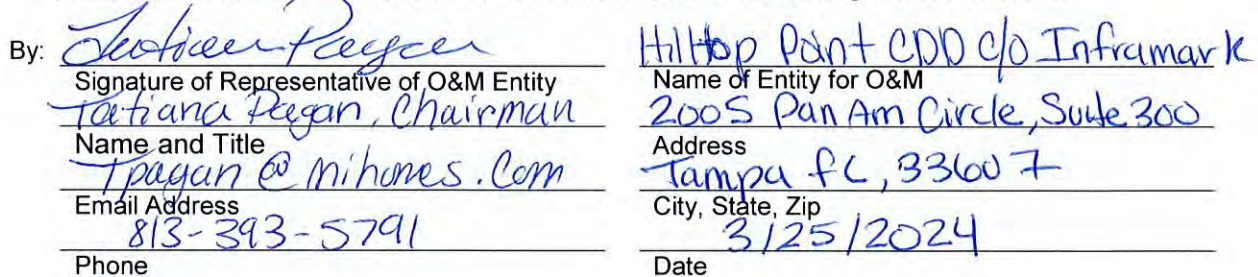 By: Tatiana Pagan
Signature of Representative of O&M Entity
Tatiana Pagan, Chairman
Name and Title
Tpagan @ mihomes.com
Email Address
813-393-5791
Phone
Hilltop Point CDD c/o Inframark
Name of Entity for O&M
2005 Pan Am Circle, Suite 300
Address
Tampa FL, 33607
City, State, Zip
3/25/2024
Date